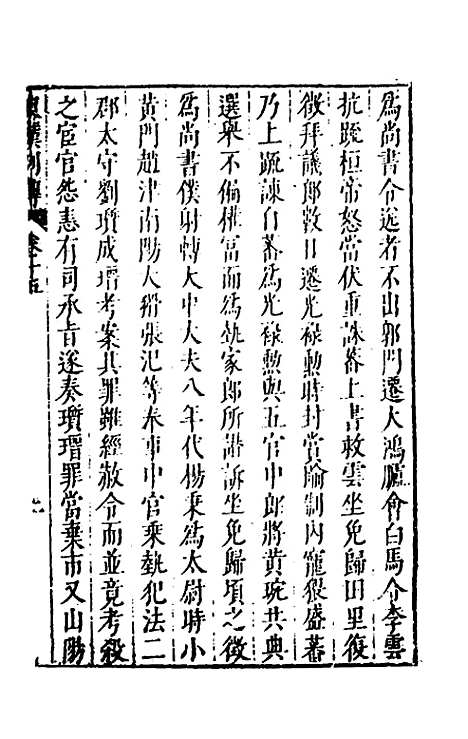 爲尚書令送者不出郭門遷大鴻臚會白馬令李雲
抗疏桓帝怒當伏重誅蕃上書救雲坐免歸田里復
徵拜議郎數日遷光祿勲時封賞踰制內寵猥盛蕃
乃上疏諫自蕃爲光祿勲與五官中郎將黃琬共典
選舉不偏權富而爲執家郎所譖訴坐免歸頃之徵
爲尚書僕射轉大中大夫八年代楊秉爲太尉時小
黃門趙津南陽大猾張汜等奉事中官乘執犯法二
郡太守劉瓆成瑨考案其罪雖經赦令而並竟考殺
之宦官怨恚有司承旨遂奏瓆瑨罪當棄市又山陽
列傳 卷十五